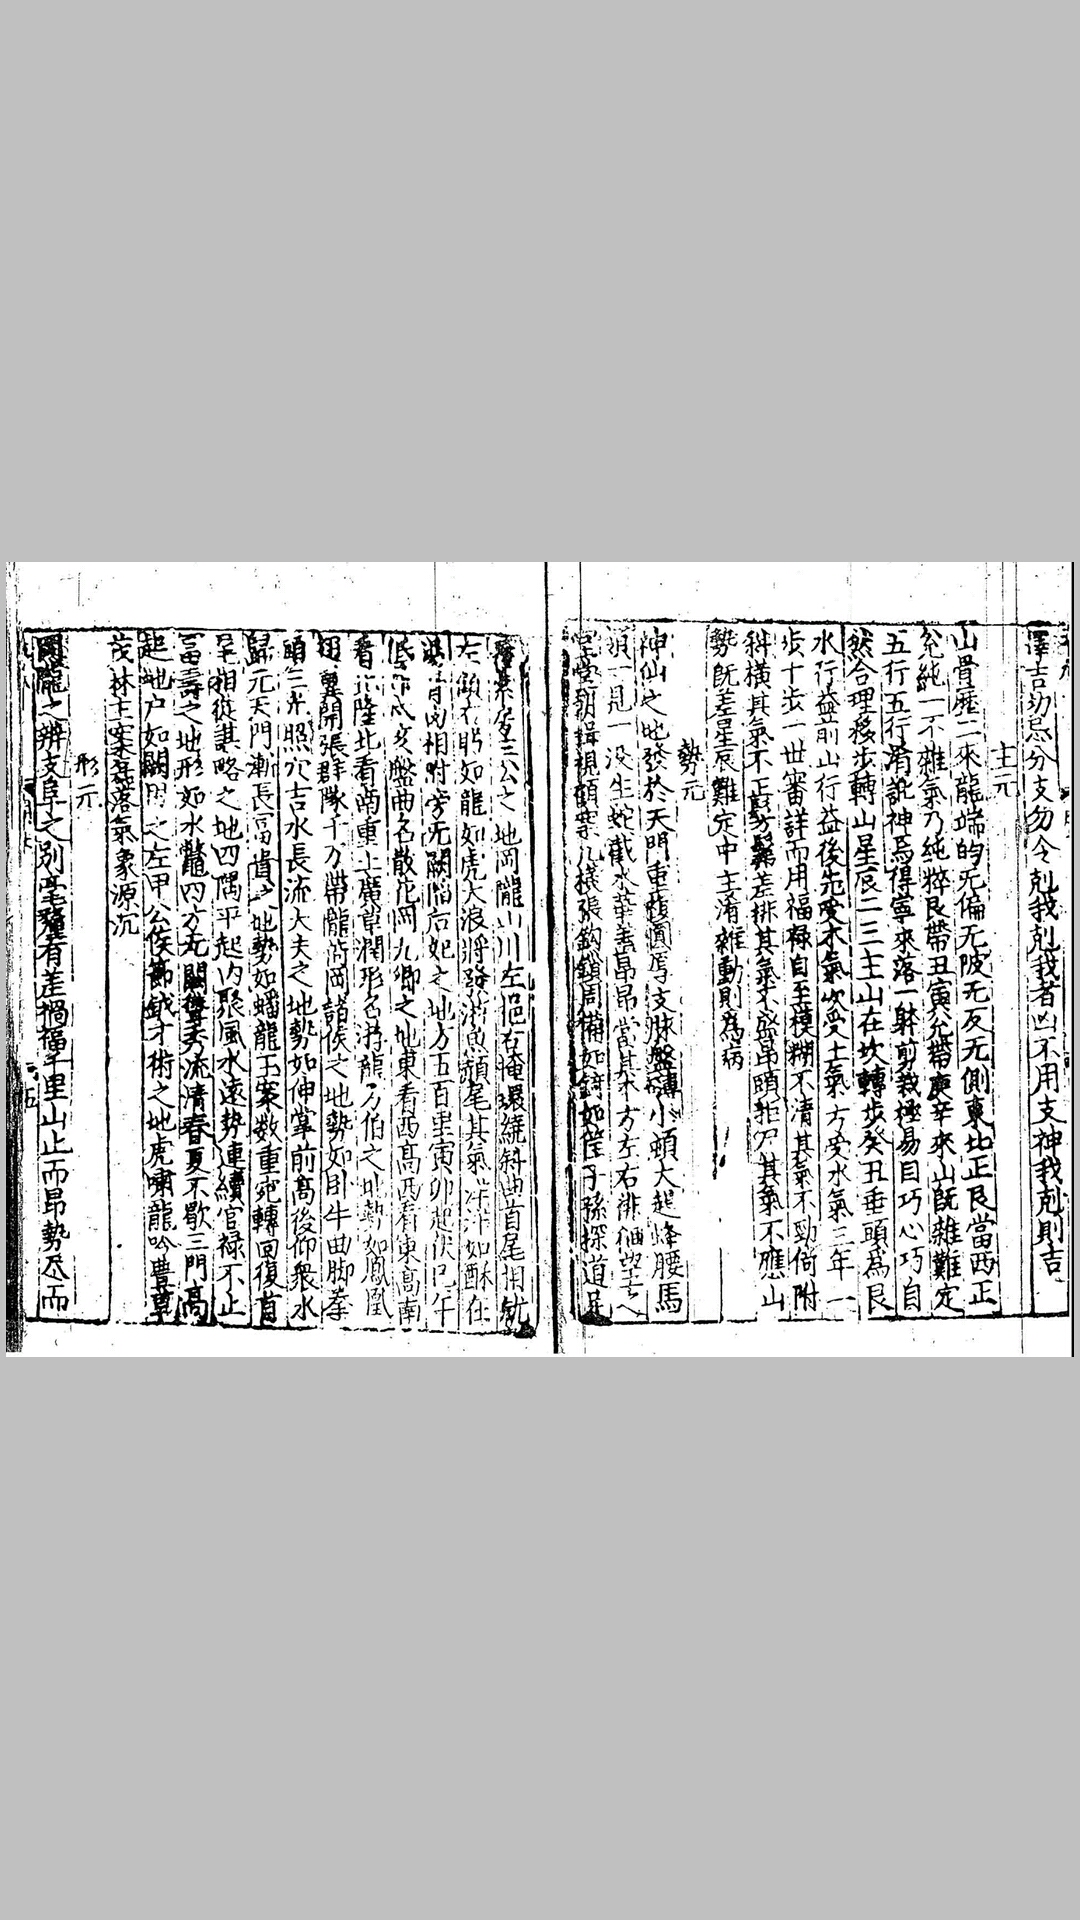 澤吉切忌分支勿令剋我剋我者凶不用支神我剋則吉
主元
山骨歷二來龍端的无偏无陂无反无側東北正艮當西正
兊純一不雜氣乃純粹艮帶丑寅兊帶庚辛來山旣雜難定
五行五行淆訛神焉得寧來落一躬剪裁極易目巧心巧自
然合理移步轉山星辰二三主山在坎轉步癸丑垂頭爲艮
水行益前山行益後先受木氣次受土氣方受水氣三年一
步十步一世審詳而用福祿自至模糊不清其氣不勁倚附
斜橫其氣不正髣髴差排其氣不盛吊頭拒穴其氣不應山
勢旣差星辰難定中主淆雜動則爲病
勢元
神仙之地發於天門重複支脉盤薄小頓大起蜂腰馬
一見一没生蛇截水華盖昂昂當其方左右徘徊
張鈎鎖周備如子孫探道
三公之地岡隴山川左抱右掩環繞斜曲首尾相
右顧如龍如虎大浪將頳尾其氣如酥在
相附旁无闕陷后妃之地方五百里寅卯起伏巳午
盤曲名散花岡九卿之地東看西高西看東高南
看北隆北看南重上廣草潤形名游龍方伯之地勢如鳳凰
翅翼開張群隊千万帶隴崗岡諸侯之地勢如卧牛曲脚拳
頭三光照穴吉水長流大夫之地勢如伸掌前高後仰衆水
歸元天門漸長富貴之地勢如蟠龍玉案数重宛轉回復首
尾相從謀略之地四隅平起内聚風水遠勢連續官禄不止
富壽之地形如水鼈四方无關雙秀流清春夏不歇三門高
起地户如闕之左甲公侯節鉞才術之地虎嘯龍吟豊草
茂林主案磊落氣象源沉
形元
岡隴之辨支阜之别毫釐有差禍福千里山止而昂勢尽而